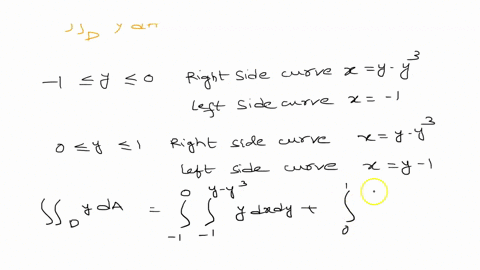 ∬_D y dA
-1 ≤ y ≤ 0 Right side curve x = y - y^3
Left side curve x = -1
0 ≤ y ≤ 1 Right side curve x = y - y^3
Left side curve x = y - 1
∬_D y dA = ∫_{-1}^{0} ∫_{-1}^{y-y^3} y dx dy + ∫_0^1